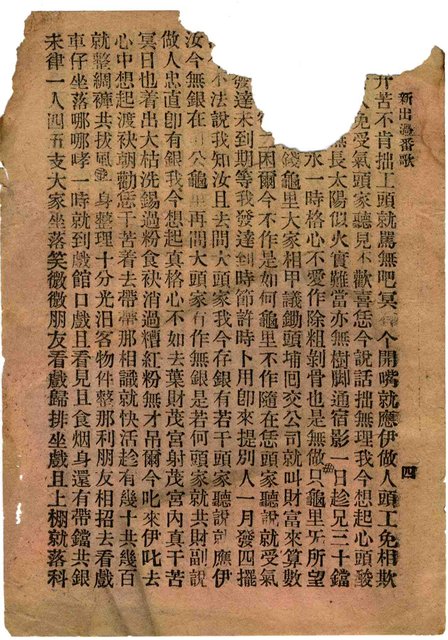 新出過番歌
四
苦不肯拙上頭就罵無吧冥 个開嘴就應伊做人頭工免相欺
免受氣頭家聽見不歡喜恁今說話拙無理我今想起心頭酸
無長太陽假火實難當亦無樹脚通宿影一日趁兄三十鐺
水一時格心不愛作除粗剝骨也是無做只龜里 所望
錢龜里大家相甲議鋤頭埔囘交公司就叫財富來算數
困爾今不作是如何龜里不作隨在恁頭家聽說就受氣
發達未到期等我發達到時節許時卜用即來提別人一月發四擺
不法說我知汝且去問大頭家我今存銀有若干頭家聽說就應伊
汝今無銀在 公龜 再問大頭家有作無銀是若何頭家就共財副說
做人忠直即有銀我今想起真格心不如去葉財茂宮射茂宮內真干苦
冥日也着出大枯洗錫過粉食袂消過糟紅粉無才吊爾今叱來伊叱去
心中想起渡袂朝勸恁干苦着去帶帶那相識就快活趁有幾十共幾百
就整綢褲共拔風 身整理十分光汨客物件整那利朋友相招去看戲
車仔坐落哪哪哮一時就到戲館口戲且看見且食烟身還有帶鐺共銀
未律一人四五支大家坐落笑微微朋友看戲歸排坐戲且上棚就落科